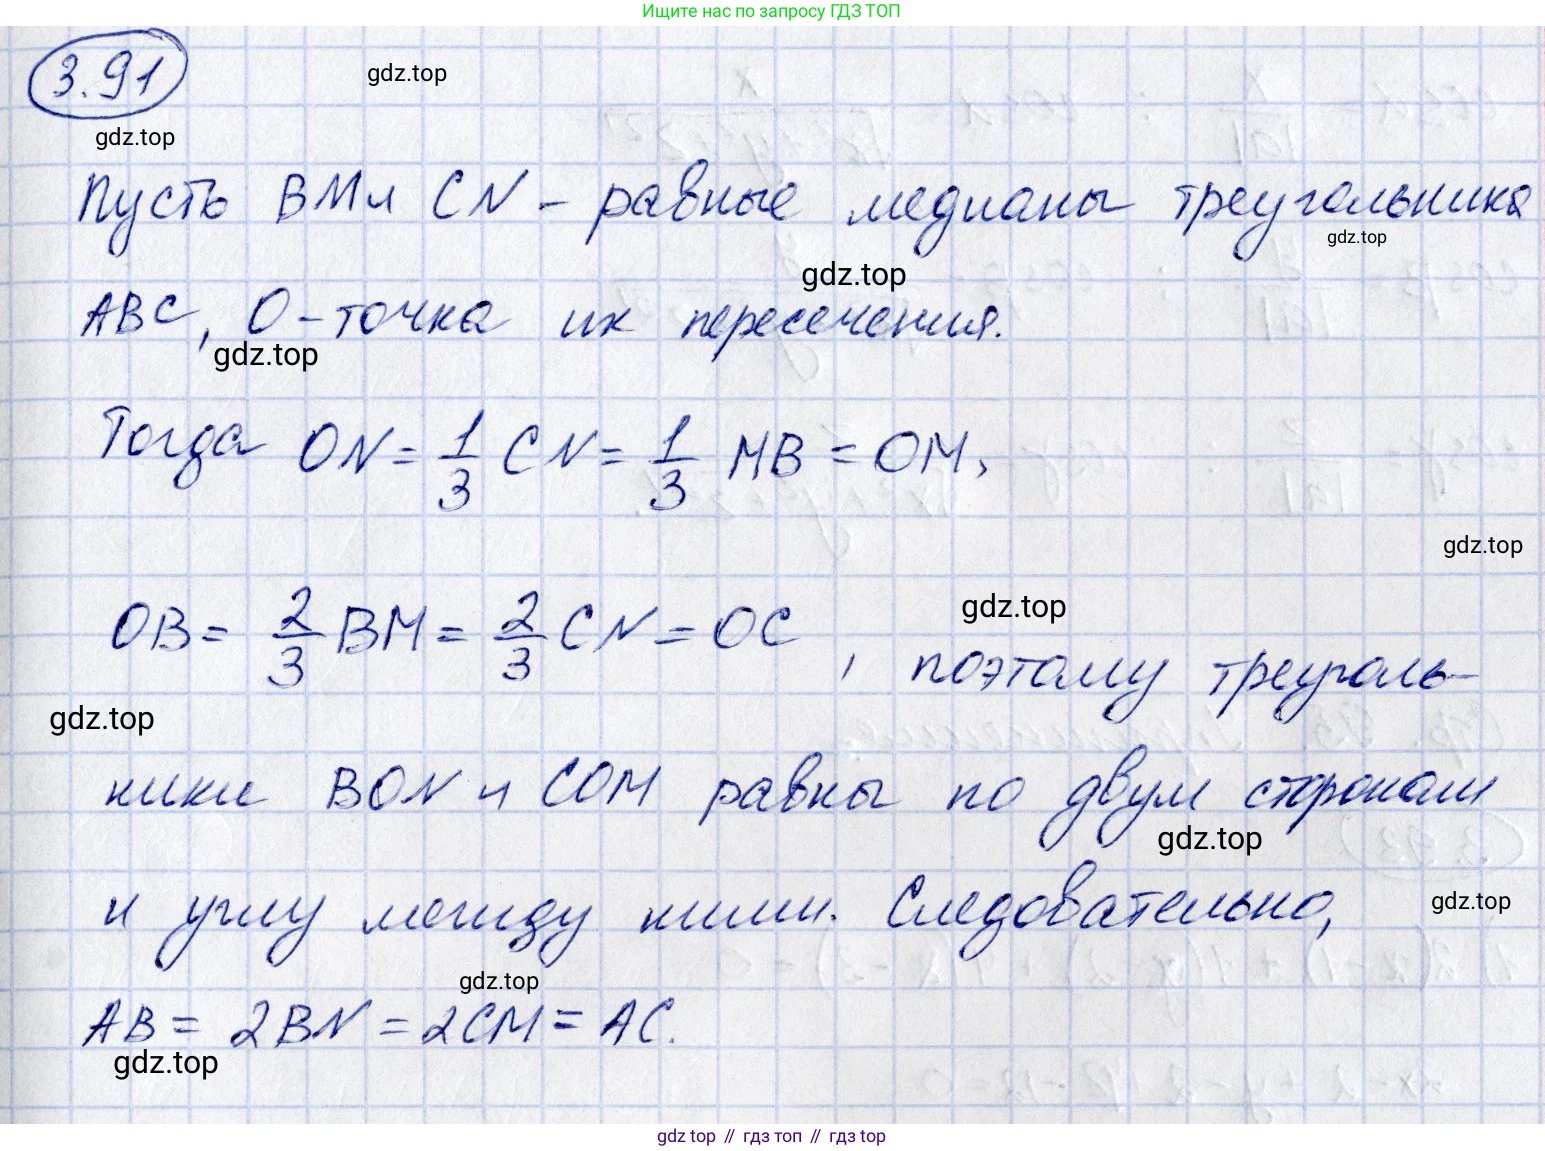 Ищите нас по запросу ГДЗ ТОП
3.91
gdz.top
gdz.top
Пусть BM и CN – равные медианы треугольника
gdz.top
gdz.top
ABC, O – точка их пересечения.
gdz.top
Тогда ON = 1/3 CN = 1/3 MB = OM,
gdz.top
gdz.top
OB = 2/3 BM = 2/3 CN = OC, поэтому треуголь-
gdz.top
ники BON и COM равны по двум сторонам
gdz.top
и углу между ними. Следовательно,
gdz.top
gdz.top
AB = 2BN = 2CM = AC.
gdz.top
gdz top // гдз топ // gdz top